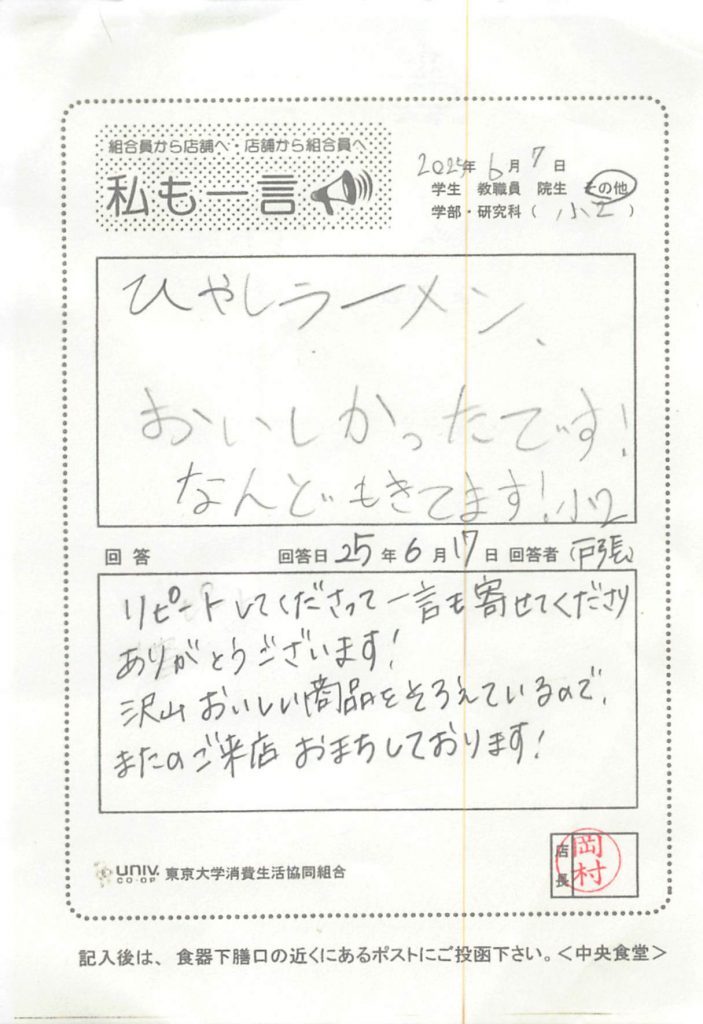 組合員から店舗へ・店舗から組合員へ
私も一言
2025年 6月 7日
学生 教職員 院生 その他
学部・研究科( 小2 )
ひやしラーメン、
おいしかったです!
なんどもきてます!小2
回答 回答日 25年 6月 17日 回答者 (戸張)
リピートしてくださって一言も寄せてくださり
ありがとうございます!
沢山おいしい商品をそろえているので、
またのご来店 おまちしております!
UNIV. CO-OP 東京大学消費生活協同組合
店長 岡村
記入後は、食器下膳口の近くにあるポストにご投函下さい。<中央食堂>